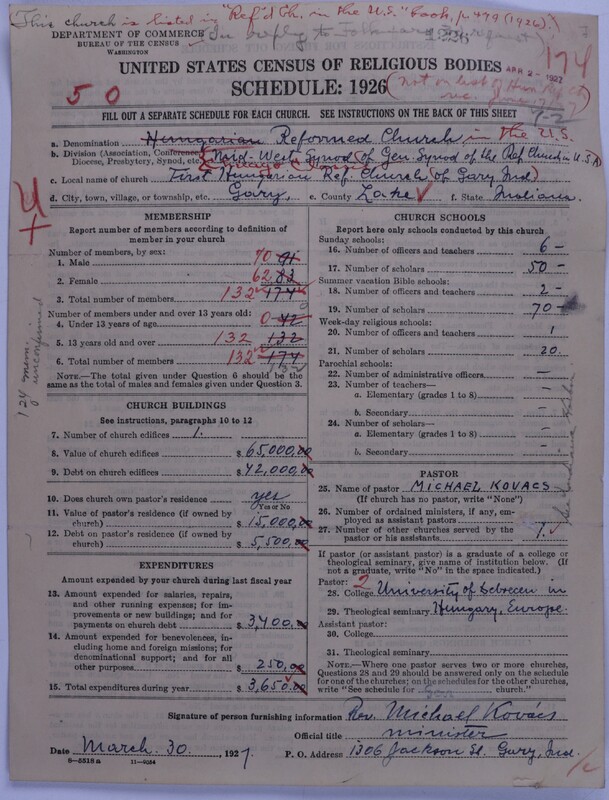 (This church is listed in "Ref'd Ch. in the U.S." book, p. 499 (1926).)
DEPARTMENT OF COMMERCE
BUREAU OF THE CENSUS
WASHINGTON
174
UNITED STATES CENSUS OF RELIGIOUS BODIES
APR 2 - 1927
SCHEDULE: 1926
50
FILL OUT A SEPARATE SCHEDULE FOR EACH CHURCH. SEE INSTRUCTIONS ON THE BACK OF THIS SHEET
a. Denomination Hungarian Reformed Church in the U.S.
b. Division (Association, Conference, Diocese, Presbytery, Synod, etc.) Mid-West Synod (of Gen. Synod of the Ref Church in U.S.A)
c. Local name of church First Hungarian Ref. Church (of Gary Ind)
d. City, town, village, or township, etc. Gary, e. County Lake f. State Indiana.
MEMBERSHIP
Report number of members according to definition of member in your church
Number of members, by sex:
1. Male 70 91
2. Female 62 83
3. Total number of members 132 174
Number of members under and over 13 years old:
4. Under 13 years of age 0 42
5. 13 years old and over 132 132
6. Total number of members 132 174
NOTE.—The total given under Question 6 should be the same as the total of males and females given under Question 3.
124 mem. unconfirmed
CHURCH BUILDINGS
See instructions, paragraphs 10 to 12
7. Number of church edifices 1.
8. Value of church edifices $ 65,000,00
9. Debt on church edifices $ 42,000,00
10. Does church own pastor's residence yes
Yes or No
11. Value of pastor's residence (if owned by church) $ 15,000,00
12. Debt on pastor's residence (if owned by church) $ 5,500,00
EXPENDITURES
Amount expended by your church during last fiscal year
13. Amount expended for salaries, repairs, and other running expenses; for improvements or new buildings; and for payments on church debt $ 3,400.00
14. Amount expended for benevolences, including home and foreign missions; for denominational support; and for all other purposes $ 250,00
15. Total expenditures during year $ 3,650.00
CHURCH SCHOOLS
Report here only schools conducted by this church
Sunday schools:
16. Number of officers and teachers 6 -
17. Number of scholars 50 -
Summer vacation Bible schools:
18. Number of officers and teachers 2 -
19. Number of scholars 70 -
Week-day religious schools:
20. Number of officers and teachers 1
21. Number of scholars 20
Parochial schools:
22. Number of administrative officers -
23. Number of teachers—
a. Elementary (grades 1 to 8) -
b. Secondary -
24. Number of scholars—
a. Elementary (grades 1 to 8) -
b. Secondary -
PASTOR
25. Name of pastor MICHAEL KOVACS
(If church has no pastor, write "None")
26. Number of ordained ministers, if any, employed as assistant pastors
27. Number of other churches served by the pastor or his assistants 1.
If pastor (or assistant pastor) is a graduate of a college or theological seminary, give name of institution below. (If not a graduate, write "No" in the space indicated.)
Pastor: 2
28. College University of Debrecen in
29. Theological seminary Hungary, Europe.
Assistant pastor:
30. College
31. Theological seminary
NOTE.—Where one pastor serves two or more churches, Questions 28 and 29 should be answered only on the schedule for one of the churches; on the schedules for the other churches, write "See schedule for church."
Signature of person furnishing information Rev. Michael Kovács
Official title minister
Date March. 30, 1927
P. O. Address 1306 Jackson St. Gary, Ind.
8—5518a 11—9054